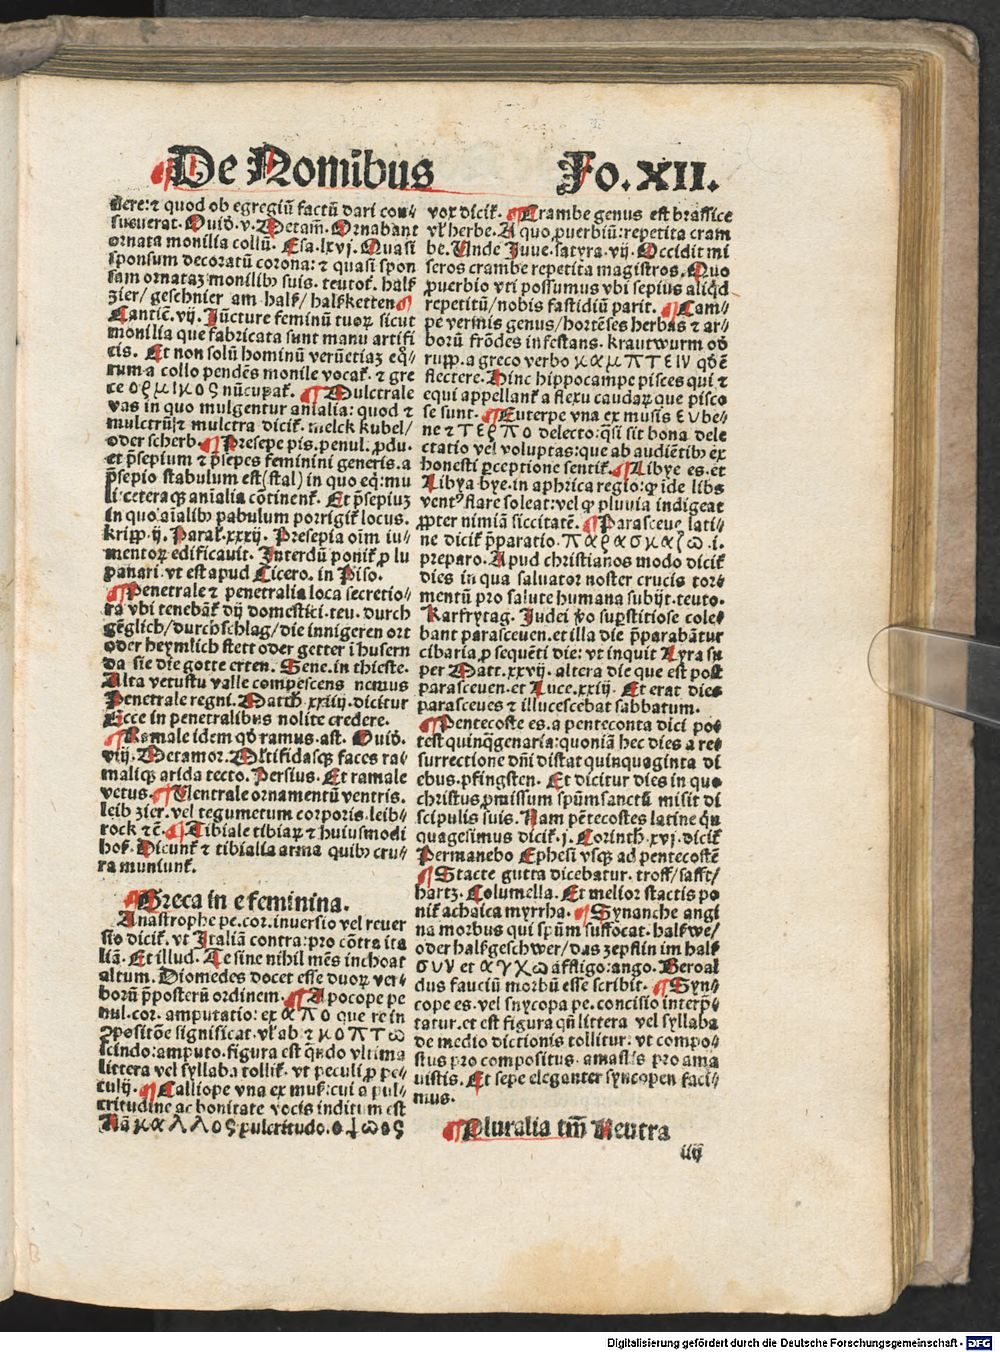 De Nominibus Fo. XII.
dere: ⁊ quod ob egregiũ factũ dari con⸗
sueuerat. Ouiđ. v. Metam̃. Ornabant
ornata monilia collũ. Esa. lxvj. Quasi
sponsum decoratũ corona: ⁊ quasi spon
sam ornataꝫ monilibꝰ suis. teutoť. halß
zier/ geschnier am halß/ halßketten ¶
Cantic̃. vij. Iũcture feminũ tuoꝝ sicut
monilia que fabricata sunt manu artifi
cis. Et non solũ hominũ verũetiaꝫ eq̃⸗
rum a collo pendẽs monile vocat̃. ⁊ gre
ce ορμικος nũcupat̃. ¶ Mulctrale
vas in quo mulgentur anĩalia: quod ⁊
mulctrũ: ⁊ mulctra dicit̃. melck kubel/
oder scherb. ¶ Presepe pis. penul. ꝓdu.
et p̃sepium ⁊ p̃sepes feminini generis. a
p̃sepio stabulum est (stal) in quo eq̃: mu
li ceteraqꝫ anĩalia cõtinent̃. Et p̃sepiuꝫ
in quo aĩalibꝰ pabulum porrigit̃ locus.
kripp. ij. Paral̃. xxxij. Presepia oĩm iu⸗
mentoꝝ edificauit. Interdũ ponit̃ ꝓ lu
panari. vt est apud Cicero. in Piso.
¶ Penetrale ⁊ penetralia loca secretio⸗
ra vbi tenebãt̃ dij domestici. teu. durch
gẽglich/ durchschlag/ die innigeren ort
oder heymlich stett oder getter ĩ husern
da sie die gotte erten. Sene. in thieste.
Alta vetustu valle compescens nemus
Penetrale regni. Matth̃. xxiiij. dicitur
Ecce in penetralibus nolite credere.
¶ Ramale idem qđ ramus. ast. Ouiđ.
viij. Metamor. Ml̃tifidasqꝫ faces ra⸗
maliqꝫ arida tecto. Persius. Et ramale
vetus. ¶ Ventrale ornamentũ ventris.
leib zier. vel tegumetum corporis. leib⸗
rock ⁊c̃. ¶ Tibiale tibiaꝝ ⁊ huiusmodi
hoß. Dicunt̃ ⁊ tibialia arma quibꝰ cru⸗
ra muniunt̃.
¶ Greca in e feminina.
Anastrophe pe. cor. inuersio vel reuer
sio dicit̃. vt Italiã contra: pro cõtra ita
liã. Et illud. Te sine nihil mẽs inchoat
altum. Diomedes docet esse duoꝝ ver⸗
borũ p̃posterũ ordinem. ¶ Apocope pe
nul. cor. amputatio: ex απο que re in
ꝯpositõe significat. vl̃ ab ⁊ κοπτω
scindo: amputo. figura est q̃ndo vltima
littera vel syllaba tollit̃. vt peculi ꝓ pe⸗
culij. ¶ Calliope vna ex mus̃: cui a pul⸗
critudine ac bonitate vocis inditum est
Nã καλλος pulcritudo. οψωος
vox dicit̃. ¶ Crambe genus est brassice
vl̃ herbe. A quo ꝓuerbiũ: repetita cram
be. Unde Juue. satyra. vij. Occidit mi
seros crambe repetita magistros. Quo
ꝓuerbio vti possumus vbi sepius aliq̃d
repetitũ/ nobis fastidiũ parit. ¶ Cam⸗
pe vermis genus/ hortẽses herbas ⁊ ar⸗
borũ frõdes infestans. krautwurm oď
rupp. a greco verbo καμπτειν qđ ẽ
flectere. Hinc hippocampe pisces qui ⁊
equi appellant̃ a flexu caudaꝝ que pisco
se sunt. ¶ Euterpe vna ex musis ευ be⸗
ne ⁊ τερπο delecto: q̃si sit bona dele
ctatio vel voluptas: que ab audiẽtibꝰ ex
honesti ꝑceptione sentit̃. ¶ Libye es. et
Libya bye. in aphrica regio: qꝫ ĩde libs
ventꝰ flare soleat: vel qꝫ pluuia indigeat
ꝓpter nimiã siccitatẽ. ¶ Parasceue lati⸗
ne dicit̃ p̃paratio. παρασκαζω. i.
preparo. Apud christianos modo dicit̃
dies in qua saluator noster crucis tor⸗
mentũ pro salute humana subijt. teuto.
Karfrytag. Judei ṽo suꝑstitiose cole⸗
bant parasceuen. et illa die p̃parabãtur
cibaria ꝓ sequẽti die: vt inquit Lyra su
per Matt. xxvij. altera die que est post
parasceuen. et Luce. xxiij. Et erat dies
parasceues ⁊ illucescebat sabbatum.
¶ Pentecoste es. a penteconta dici po⸗
test quinq̃genaria: quoniã hec dies a re⸗
surrectione dñi distat quinquaginta di
ebus. pfingsten. Et dicitur dies in quo
christus ꝓmissum spũmsanctũ misit di
scipulis suis. Nam pẽtecostes latine q̃n
quagesimus dicit̃. j. Corinth. xvj. dicit̃
Permanebo Ephesi vsqꝫ ad pentecostẽ
¶ Stacte gutta dicebatur. troff/ safft/
hartz. Columella. Et melior stactis po
nit̃ achaica myrrha. ¶ Synanche angi
na morbus qui spũm suffocat. halßwe/
oder halßgeschwer/ das zepflin im halß
συν et αγχω affligo: ango. Beroal
dus fauciũ morbũ esse scribit. ¶ Syn⸗
cope es. vel snycopa pe. concisio interp̃⸗
tatur. et est figura qñ littera vel syllaba
de medio dictionis tollitur: vt compo⸗
stus pro compositus. amastis pro ama
uistis. Et sepe eleganter syncopen faci⸗
mus.
¶ Pluralia tm̃ Neutra
iiij
Digitalisierung gefördert durch die Deutsche Forschungsgemeinschaft - DFG